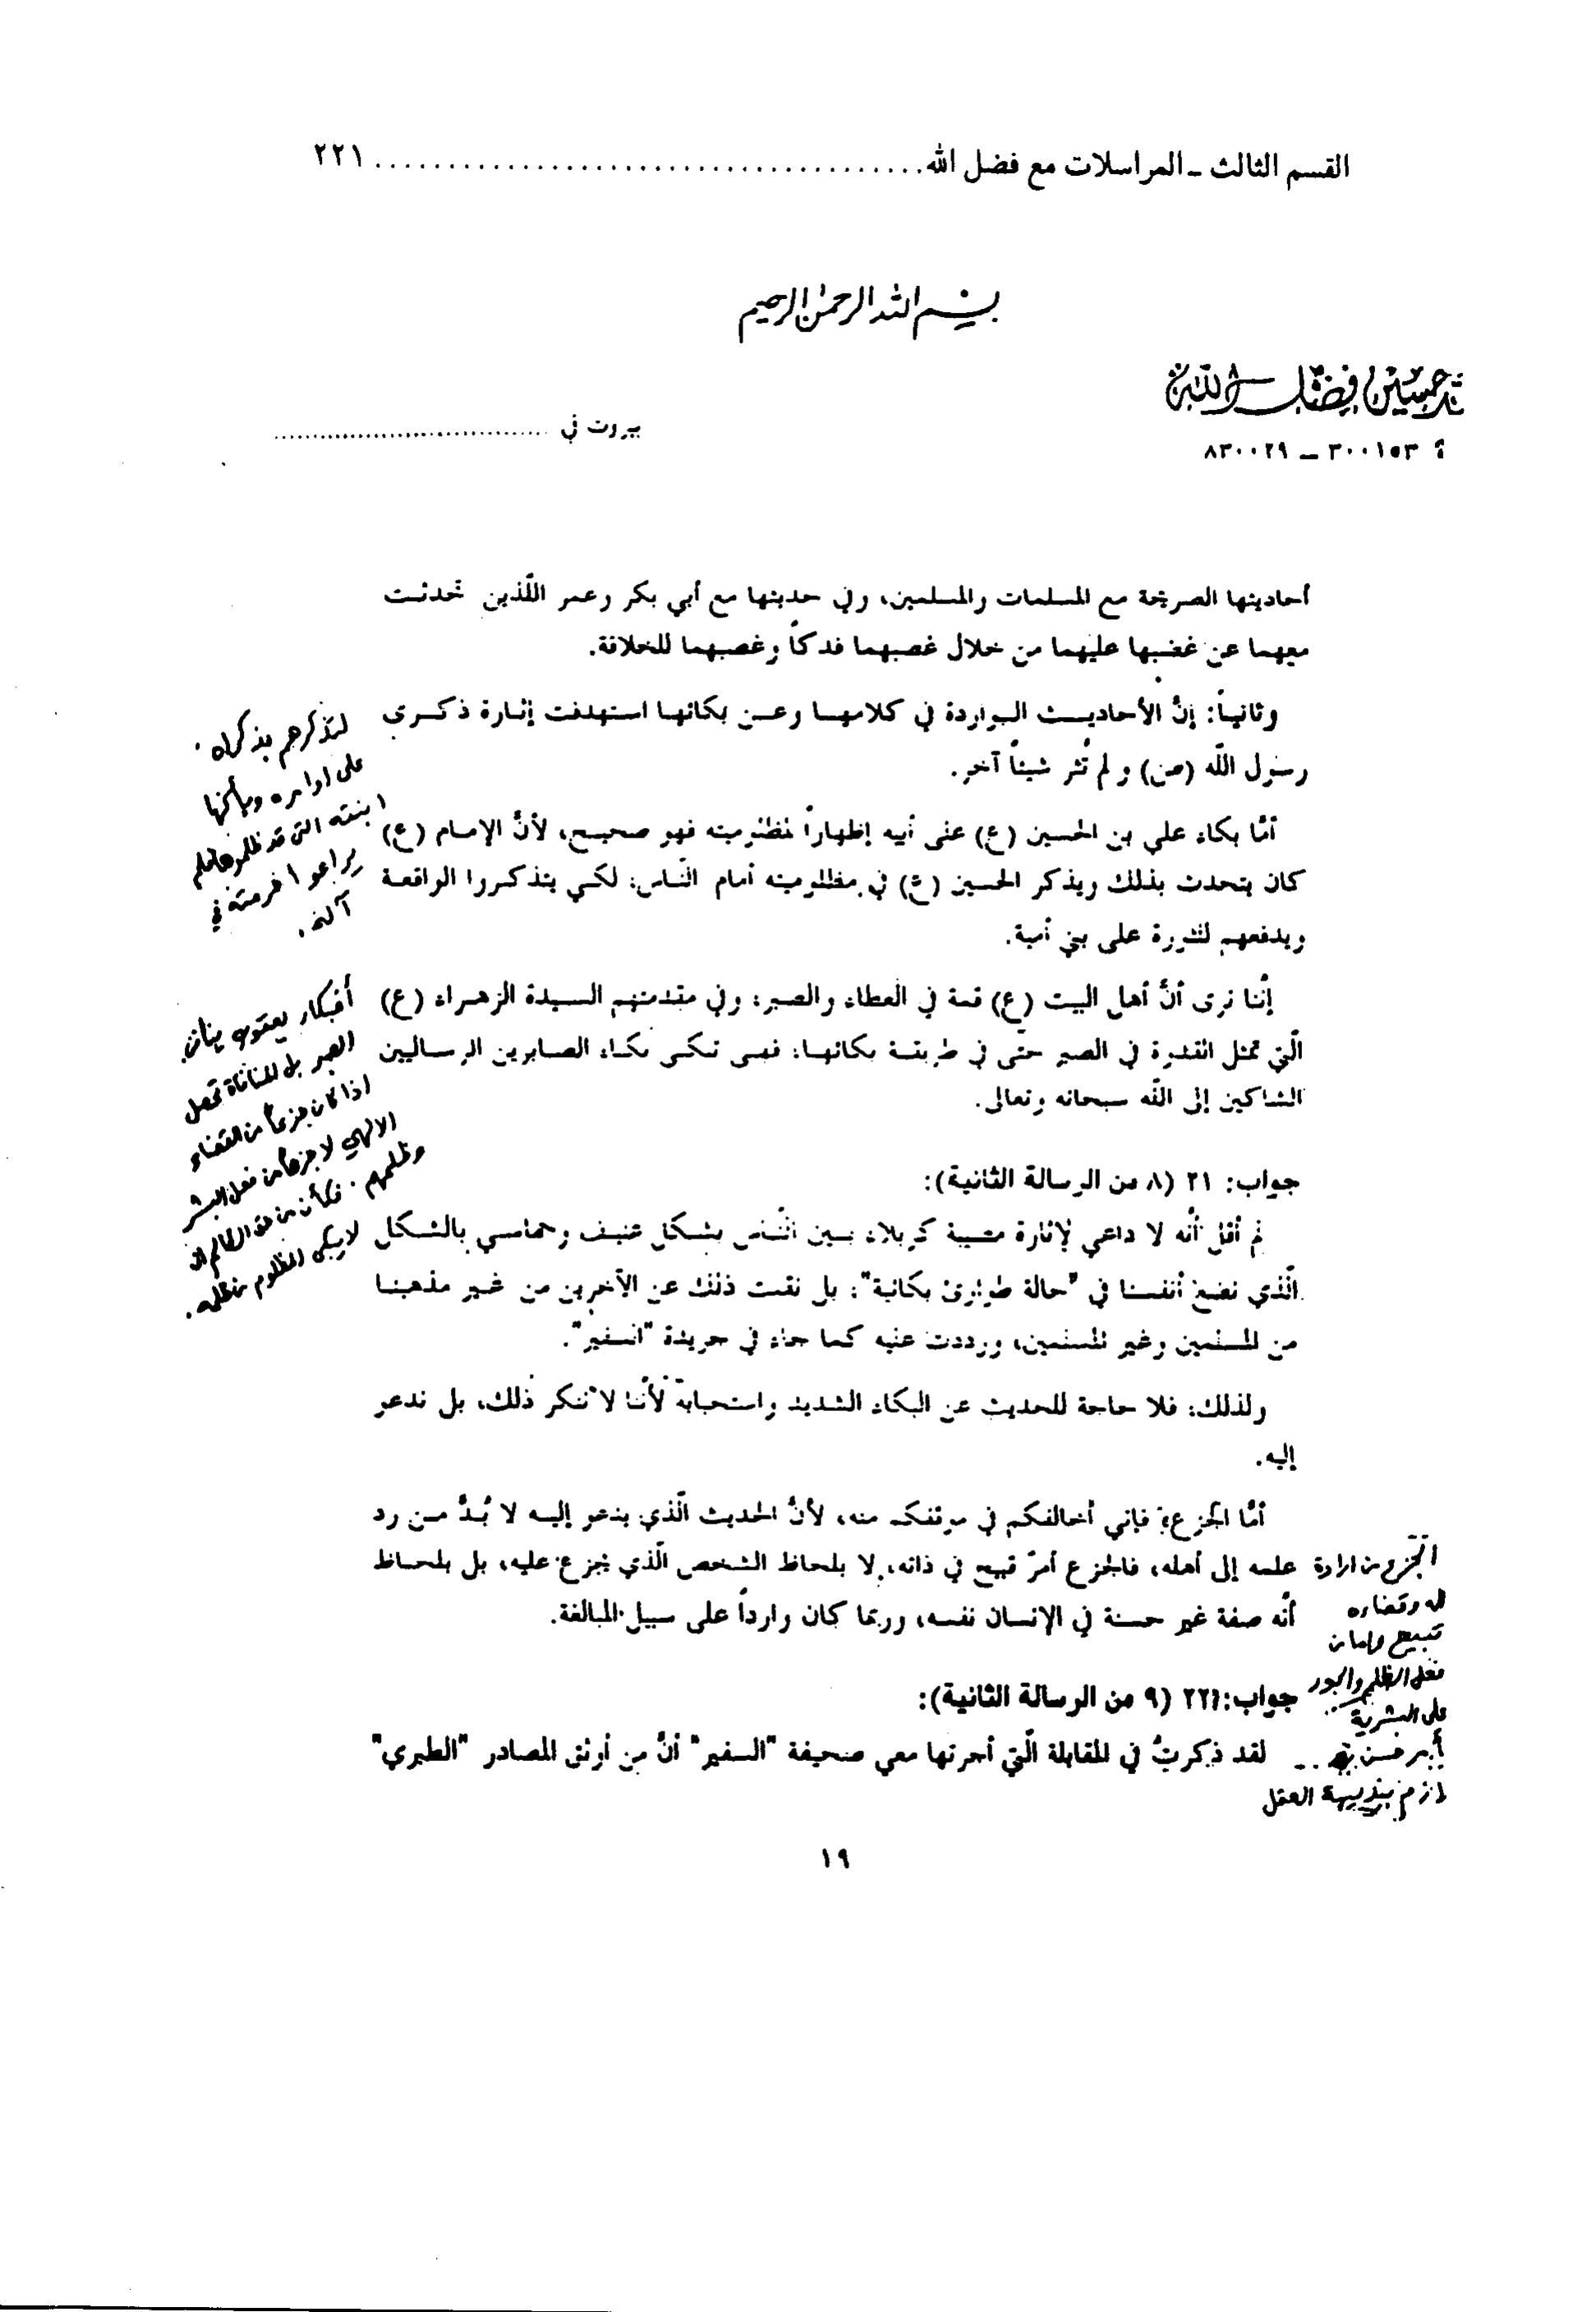 القسم الثالث ـ المراسلات مع فضل الله ........................................ ٢٢١
بسم الله الرحمن الرحيم
حسين فضل الله
٣٠٠١٥٣ – ٨٣٠٠٢٩
بيروت في ........................................
أحاديثها الصريحة مع المسلمات والمسلمين، وفي حديثها مع أبي بكر وعمر اللّذين تحدثت
معهما عن غضبها عليهما من خلال غصبهما فدكاً وغصبهما للخلافة.
وثانياً: إنّ الأحاديث الواردة في كلامها وعن بكائها استهدفت إثارة ذكرى
رسول اللّه (ص) ولم تُثر شيئاً آخر.
لتذكرهم بذكراه
على أوامره وبأنها
ابنته التي قد ظلموها ولم
يراعوا حرمته في
آله.
أمّا بكاء علي بن الحسين (ع) على أبيه إظهاراً لمظلوميته فهو صحيح، لأنّ الإمام (ع)
كان يتحدث بذلك ويذكر الحسين (ع) في مظلوميته أمام النّاس، لكي يتذكروا الواقعة
ويدفعهم للثورة على بني أمية.
إنّنا نرى أنّ أهل البيت (ع) قمة في العطاء والصبر، وفي مقدمتهم السيدة الزهراء (ع)
الّتي تمثل القدوة في الصبر حتّى في طريقة بكائها، فهي تبكي بكاء الصابرين الرساليين
الشاكين إلى اللّه سبحانه وتعالى.
أفبكاء يعقوب ينافي
الصبر بل المنافاة تحصل
اذا كان جزعاً من القضاء
الالهي لا جزعاً من فعل البشر
وظلمهم. فكأن من حق الظالم ان
لا يبكي المظلوم من ظلمه.
جواب: ٢١ (٨ من الرسالة الثانية):
لم أقل أنّه لا داعي لإثارة مصيبة كربلاء بين النّاس بشكل عنيف وحماسي بالشكل
الّذي نضع أنفسنا في "حالة طوارئ بكائية"، بل نقلت ذلك عن الآخرين من غير مذهبنا
من المسلمين وغير المسلمين، ورددت عليه كما جاء في جريدة "السفير".
ولذلك، فلا حاجة للحديث عن البكاء الشديد واستحبابه لأنّنا لا ننكر ذلك، بل ندعو
إليه.
أمّا الجزع، فإني أخالفكم في موقفكم منه، لأنّ الحديث الّذي يدعو إليه لا بُدّ من رد
علمه إلى أهله، فالجزع أمرٌ قبيح في ذاته، لا بلحاظ الشخص الّذي يجزع عليه، بل بلحاظ
أنّه صفة غير حسنة في الإنسان نفسه، وربما كان وارداً على سبيل المبالغة.
الجزع من ارادة
الله وقضاءه
قبيح واما من
فعل الظلم والجور
على البشرية
أمر حسن
لازم ببديهة العقل
جواب: ٢٢ (٩ من الرسالة الثانية):
لقد ذكرتُ في المقابلة الّتي أجرتها معي صحيفة "السفير" أنّ من أوثق المصادر "الطبري"
١٩